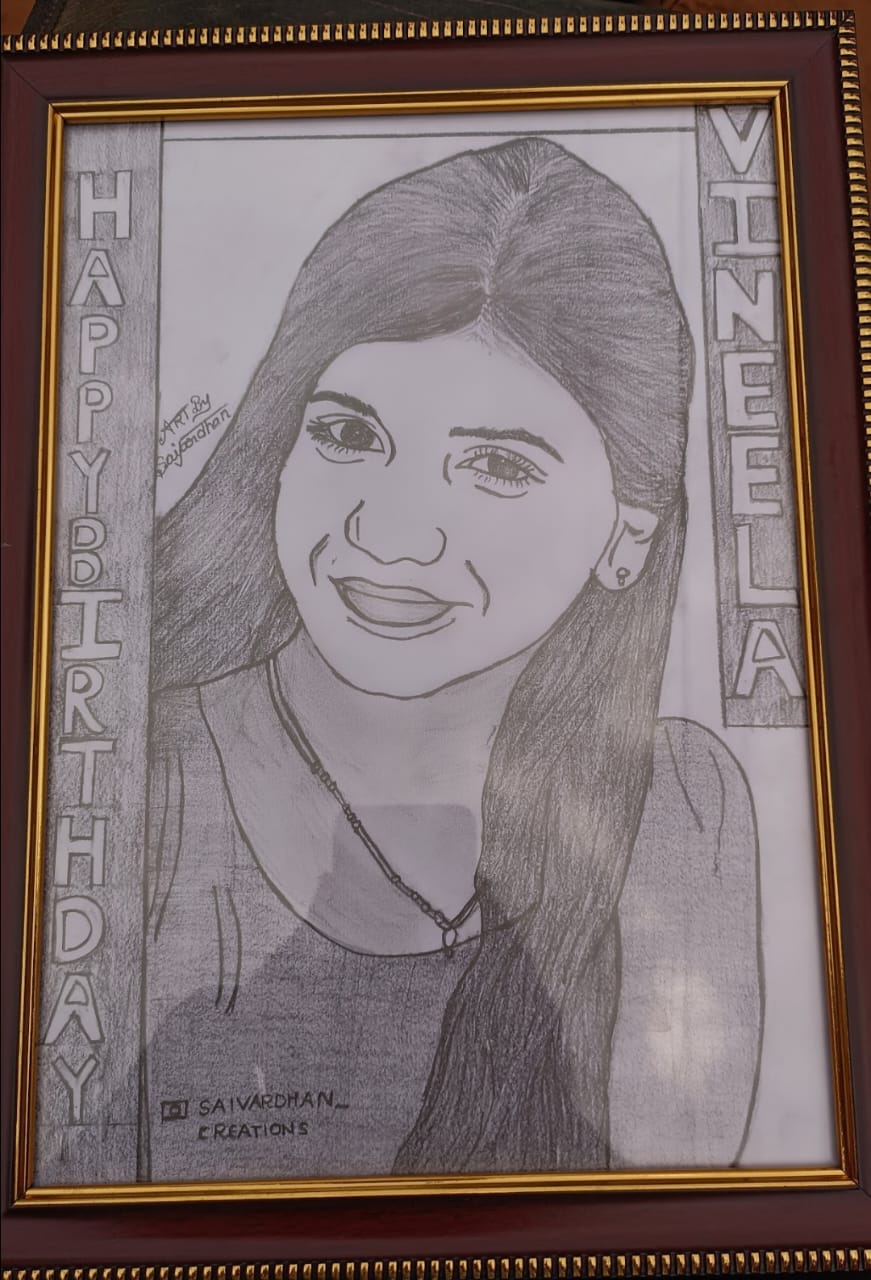 HAPPYBIRTHDAY
VINEELA
ART By
Saivardhan
SAIVARDHAN_
CREATIONS